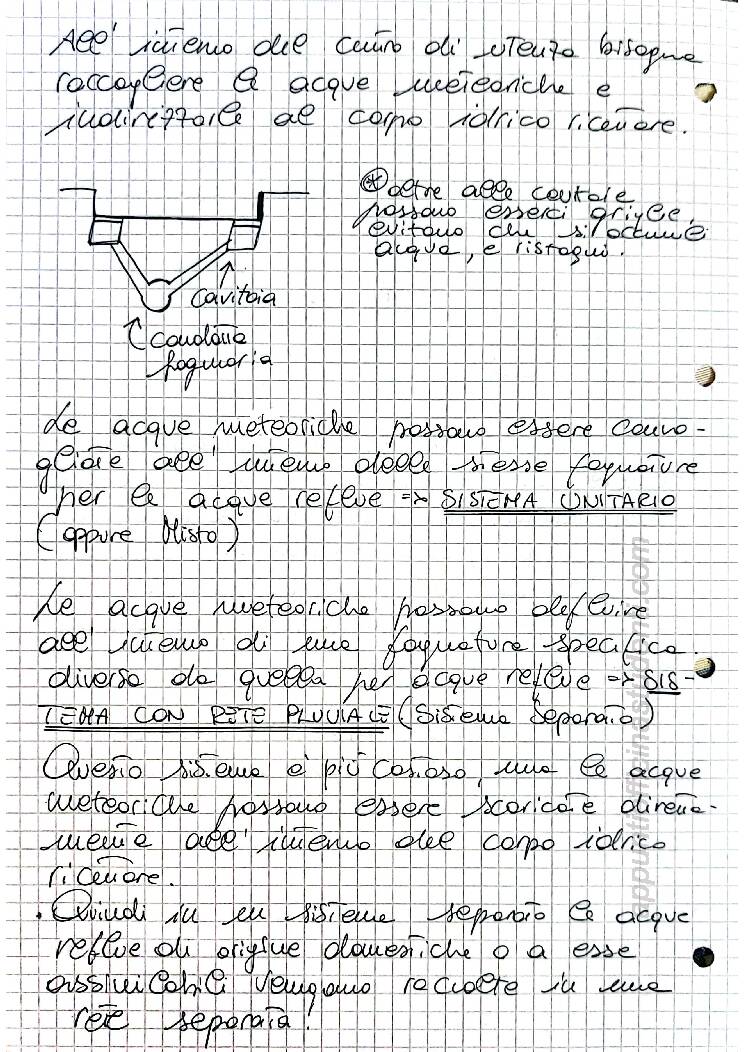 All' interno del centro di utenza bisogna
raccogliere le acque meteoriche e
indirizzarle al corpo idrico ricettore.
⊛ oltre alle caditoie
possono esserci griglie,
evitano che si accumuli
acqua, e ristagni.
Caditoia
Condotta
fognaria
Le acque meteoriche possono essere convo-
gliate all' interno delle stesse fognature
per le acque reflue => SISTEMA UNITARIO
(oppure Misto)
Le acque meteoriche possono defluire
all' interno di una fognatura specifica
diversa da quella per acque reflue => SIS-
TEMA CON RETE PLUVIALE (Sistema Separato)
Questo sistema è più costoso, ma le acque
meteoriche possono essere scaricate diretta-
mente all' interno del corpo idrico
ricettore.
. Quindi in un sistema separato le acque
reflue di origine domestiche o a esse
assimilabili vengono raccolte in una
rete separata!
appuntiaffinestudom.com